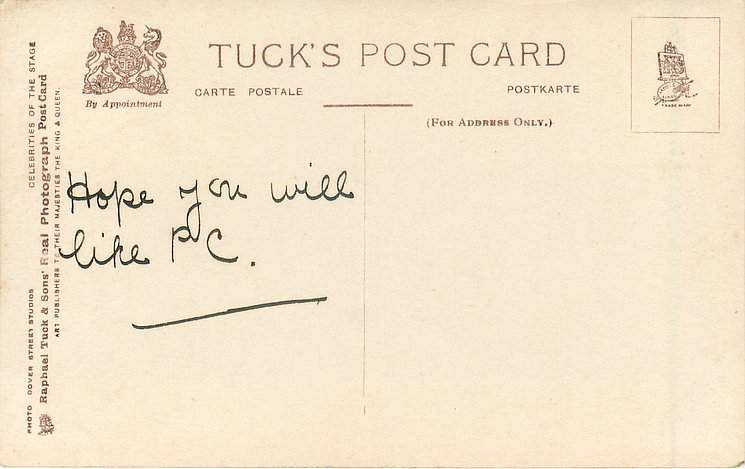 TUCK'S POST CARD
By Appointment
CARTE POSTALE
POSTKARTE
(FOR ADDRESS ONLY.)
Hope you will
like PC.
PHOTO DOVER STREET STUDIOS
CELEBRITIES OF THE STAGE
Raphael Tuck & Sons' Real Photograph Post Card
ART PUBLISHERS TO THEIR MAJESTIES THE KING & QUEEN.
TRADE MARK